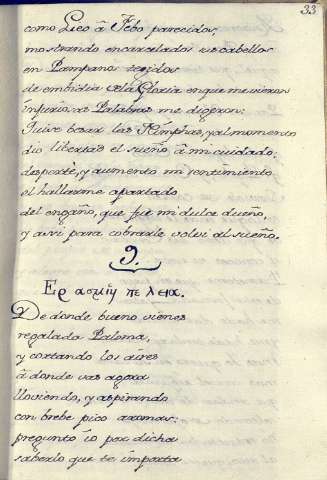 33
como Lieo â Febo parecidos,
mostrando encarcelados sus cabellos
en Pampanos tejidos
de embidia de la Gloria en que me vieron
injuriosas Palabras me digeron:
Quise besar las Nimphas, y al momento
dio libertad el sueño â mi cuidado;
desperté, y aumento mi sentimiento
el hallarme apartado
del engaño, que fue mi dulce dueño,
y assi para cobrarle volvi al sueño.
9.
Ερασμίη πέλεια.
De donde bueno vienes
regalada Paloma,
y cortando los aires
â donde vas agora
lloviendo, y aspirando
con brebe pico aromas:
pregunto io por dicha
saberlo que te importa